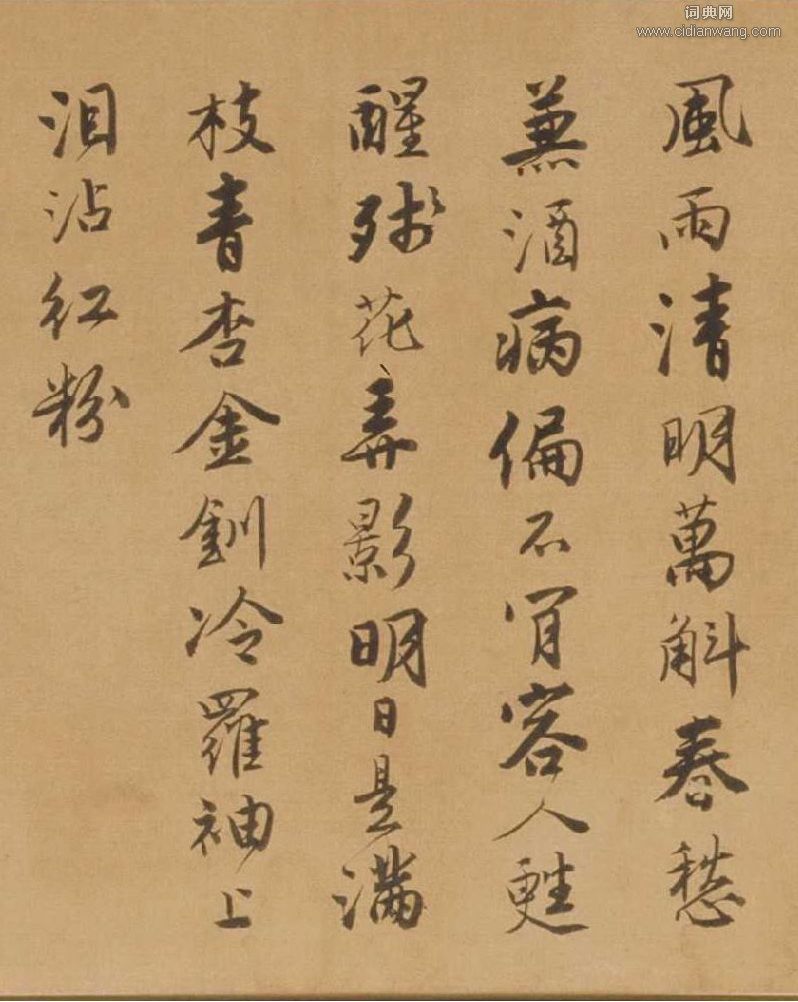 词典网
www.cidianwang.com
風雨清明萬斛春愁
兼酒病偏不肎容人甦
醒殘花弄影明日是滿
枝青杏金釧冷羅袖上
泪沾红粉